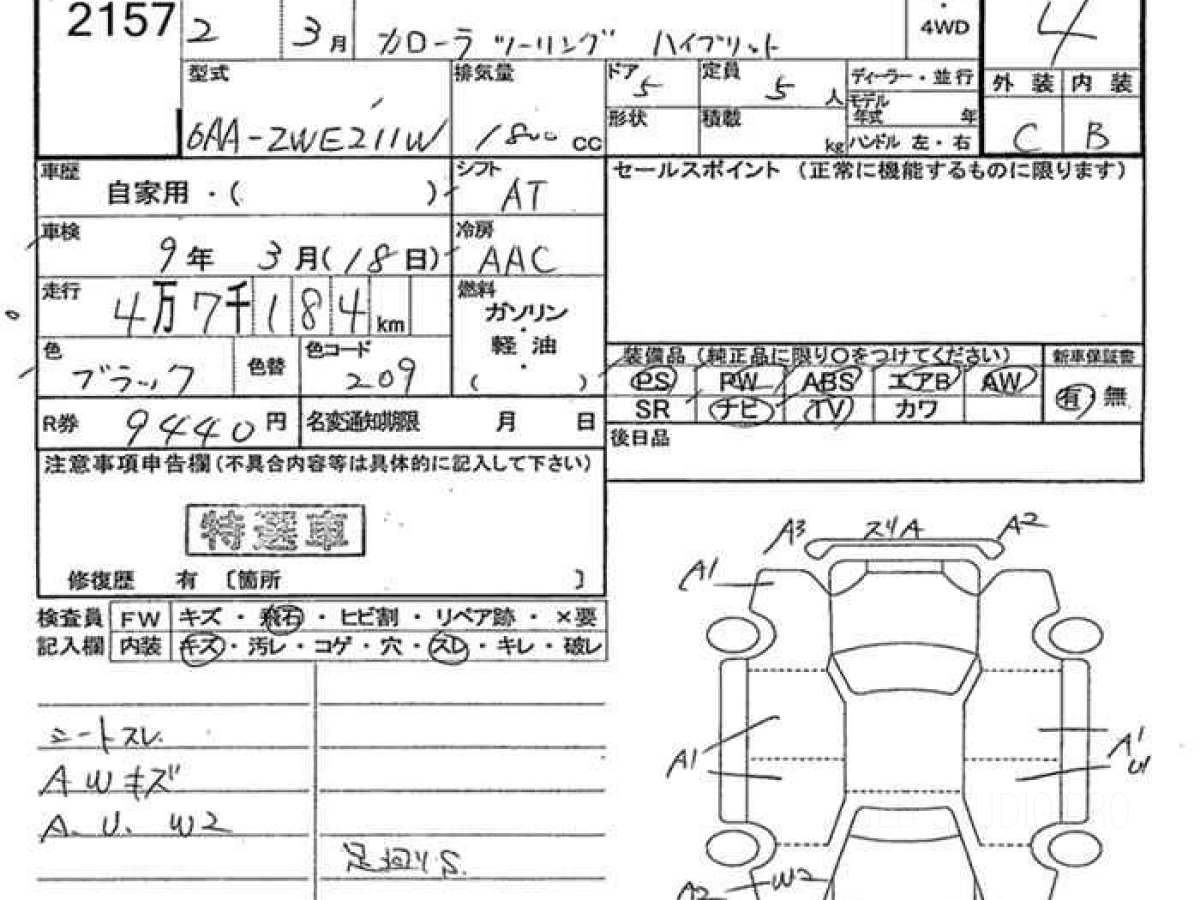 2157
2 3月 カローラ ツーリング ハイブリット
4WD
4
型式
6AA-ZWE211W
排気量
1800 cc
ドア
5
定員
5 人
形状
積載
kg
ディーラー・並行
モデル年式 年
ハンドル 左・右
外装 内装
C B
車歴
自家用・( )
シフト
AT
セールスポイント (正常に機能するものに限ります)
車検
9年 3月(18日)
冷房
AAC
走行
4万7千184km
燃料
ガソリン
・
軽油
・
( )
色
ブラック
色替
色コード
209
装備品 (純正品に限り○をつけてください)
PS PW ABS エアB AW
SR ナビ TV カワ
新車保証書
有 無
R券 9440円
名変通知期限 月 日
後日品
注意事項申告欄(不具合内容等は具体的に記入して下さい)
特選車
修復歴 有 〔箇所 〕
検査員記入欄
FW キズ・飛石・ヒビ割・リペア跡・×要
内装 キズ・汚レ・コゲ・穴・スレ・キレ・破レ
シートスレ
AWキズ
A. U. W2
足廻りS.
A3 スリA A2
A1
A1
A1
U1
A2 W2